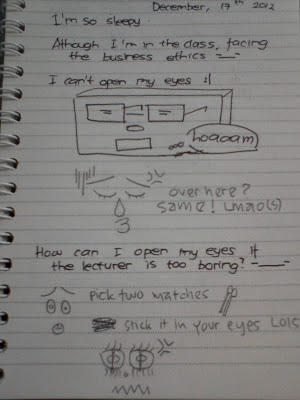 December, 19th 2012
I'm so sleepy.
Athough I'm in the class, facing
the business ethics -__-
I can't open my eyes :(
hoaoam
over here?
same! Lmao(s)
How can I open my eyes if
the lecturer is too boring? -___-
pick two matches
stick it in your eyes Lols